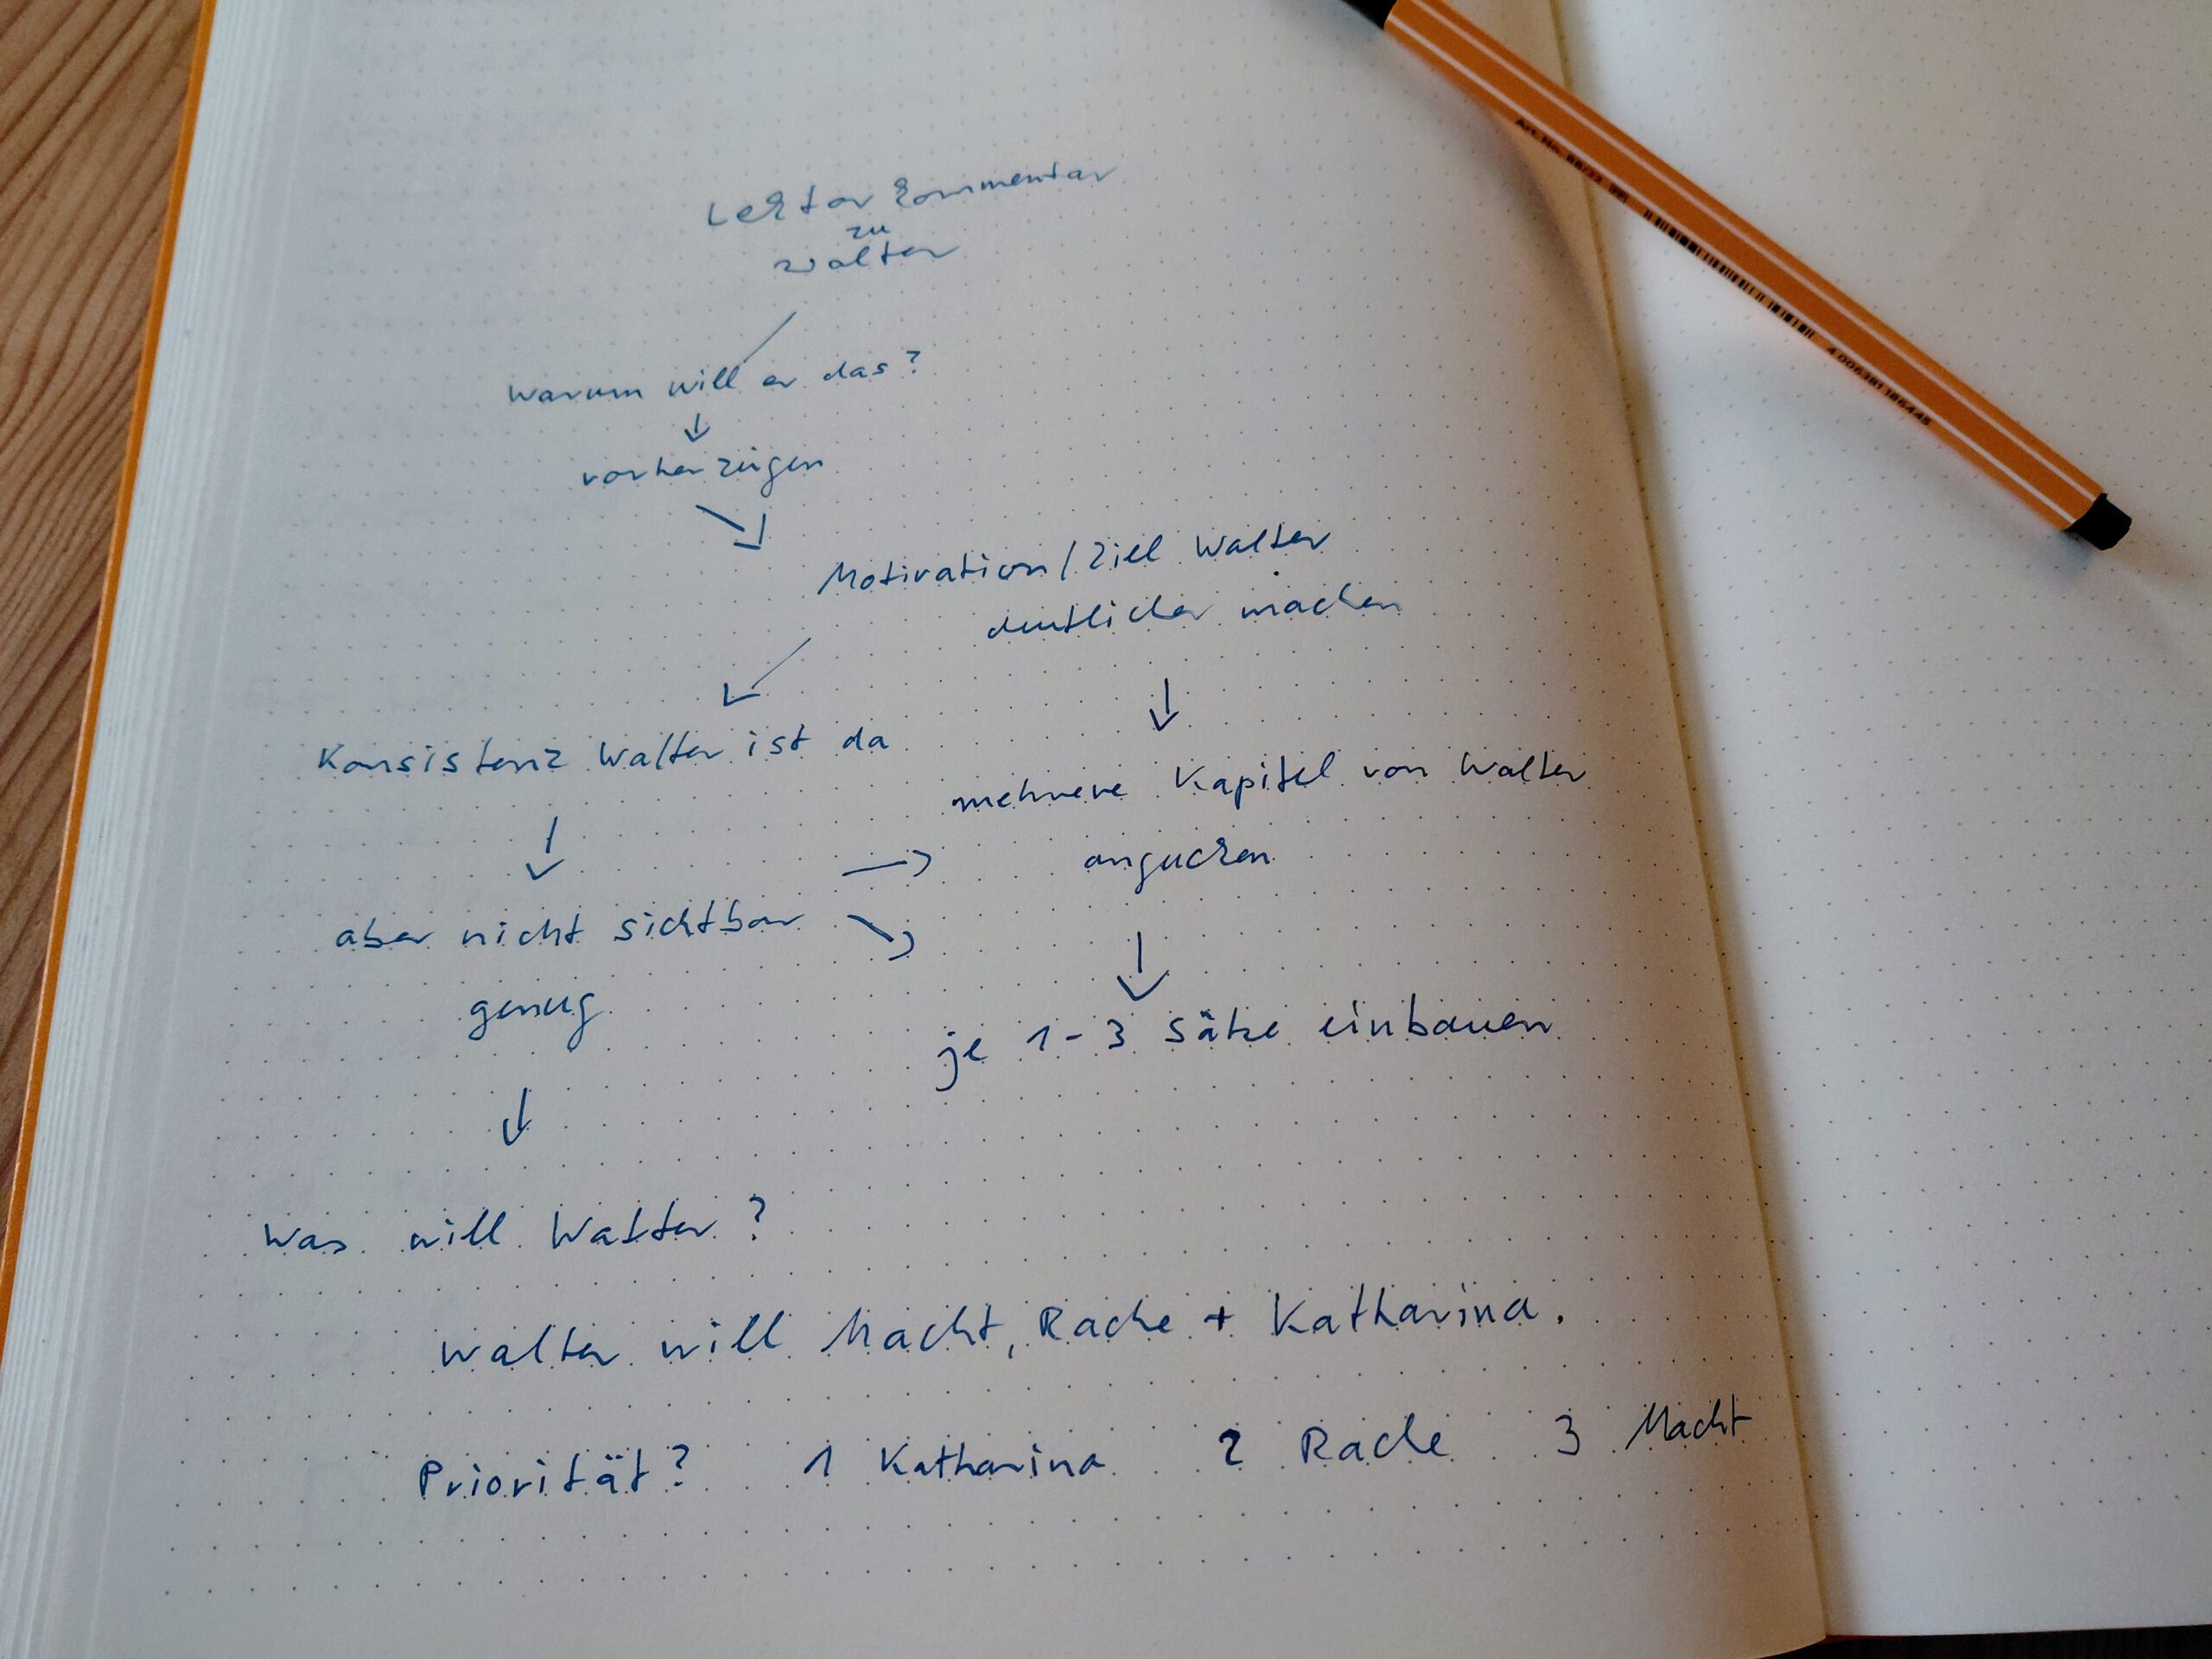 Lektor kommentar
zu
Walter
Warum will er das?
↓
vorher zeigen
↘
Motivation/Ziel Walter
deutlicher machen
↙
↓
Konsistenz Walter ist da
mehrere Kapitel von Walter
angucken
↓
aber nicht sichtbar
→
↘
genug
↓
je 1-3 Sätze einbauen
↓
Was will Walter?
Walter will Macht, Rache + Katharina.
Priorität? 1 Katharina 2 Rache 3 Macht
Art. No. 88/